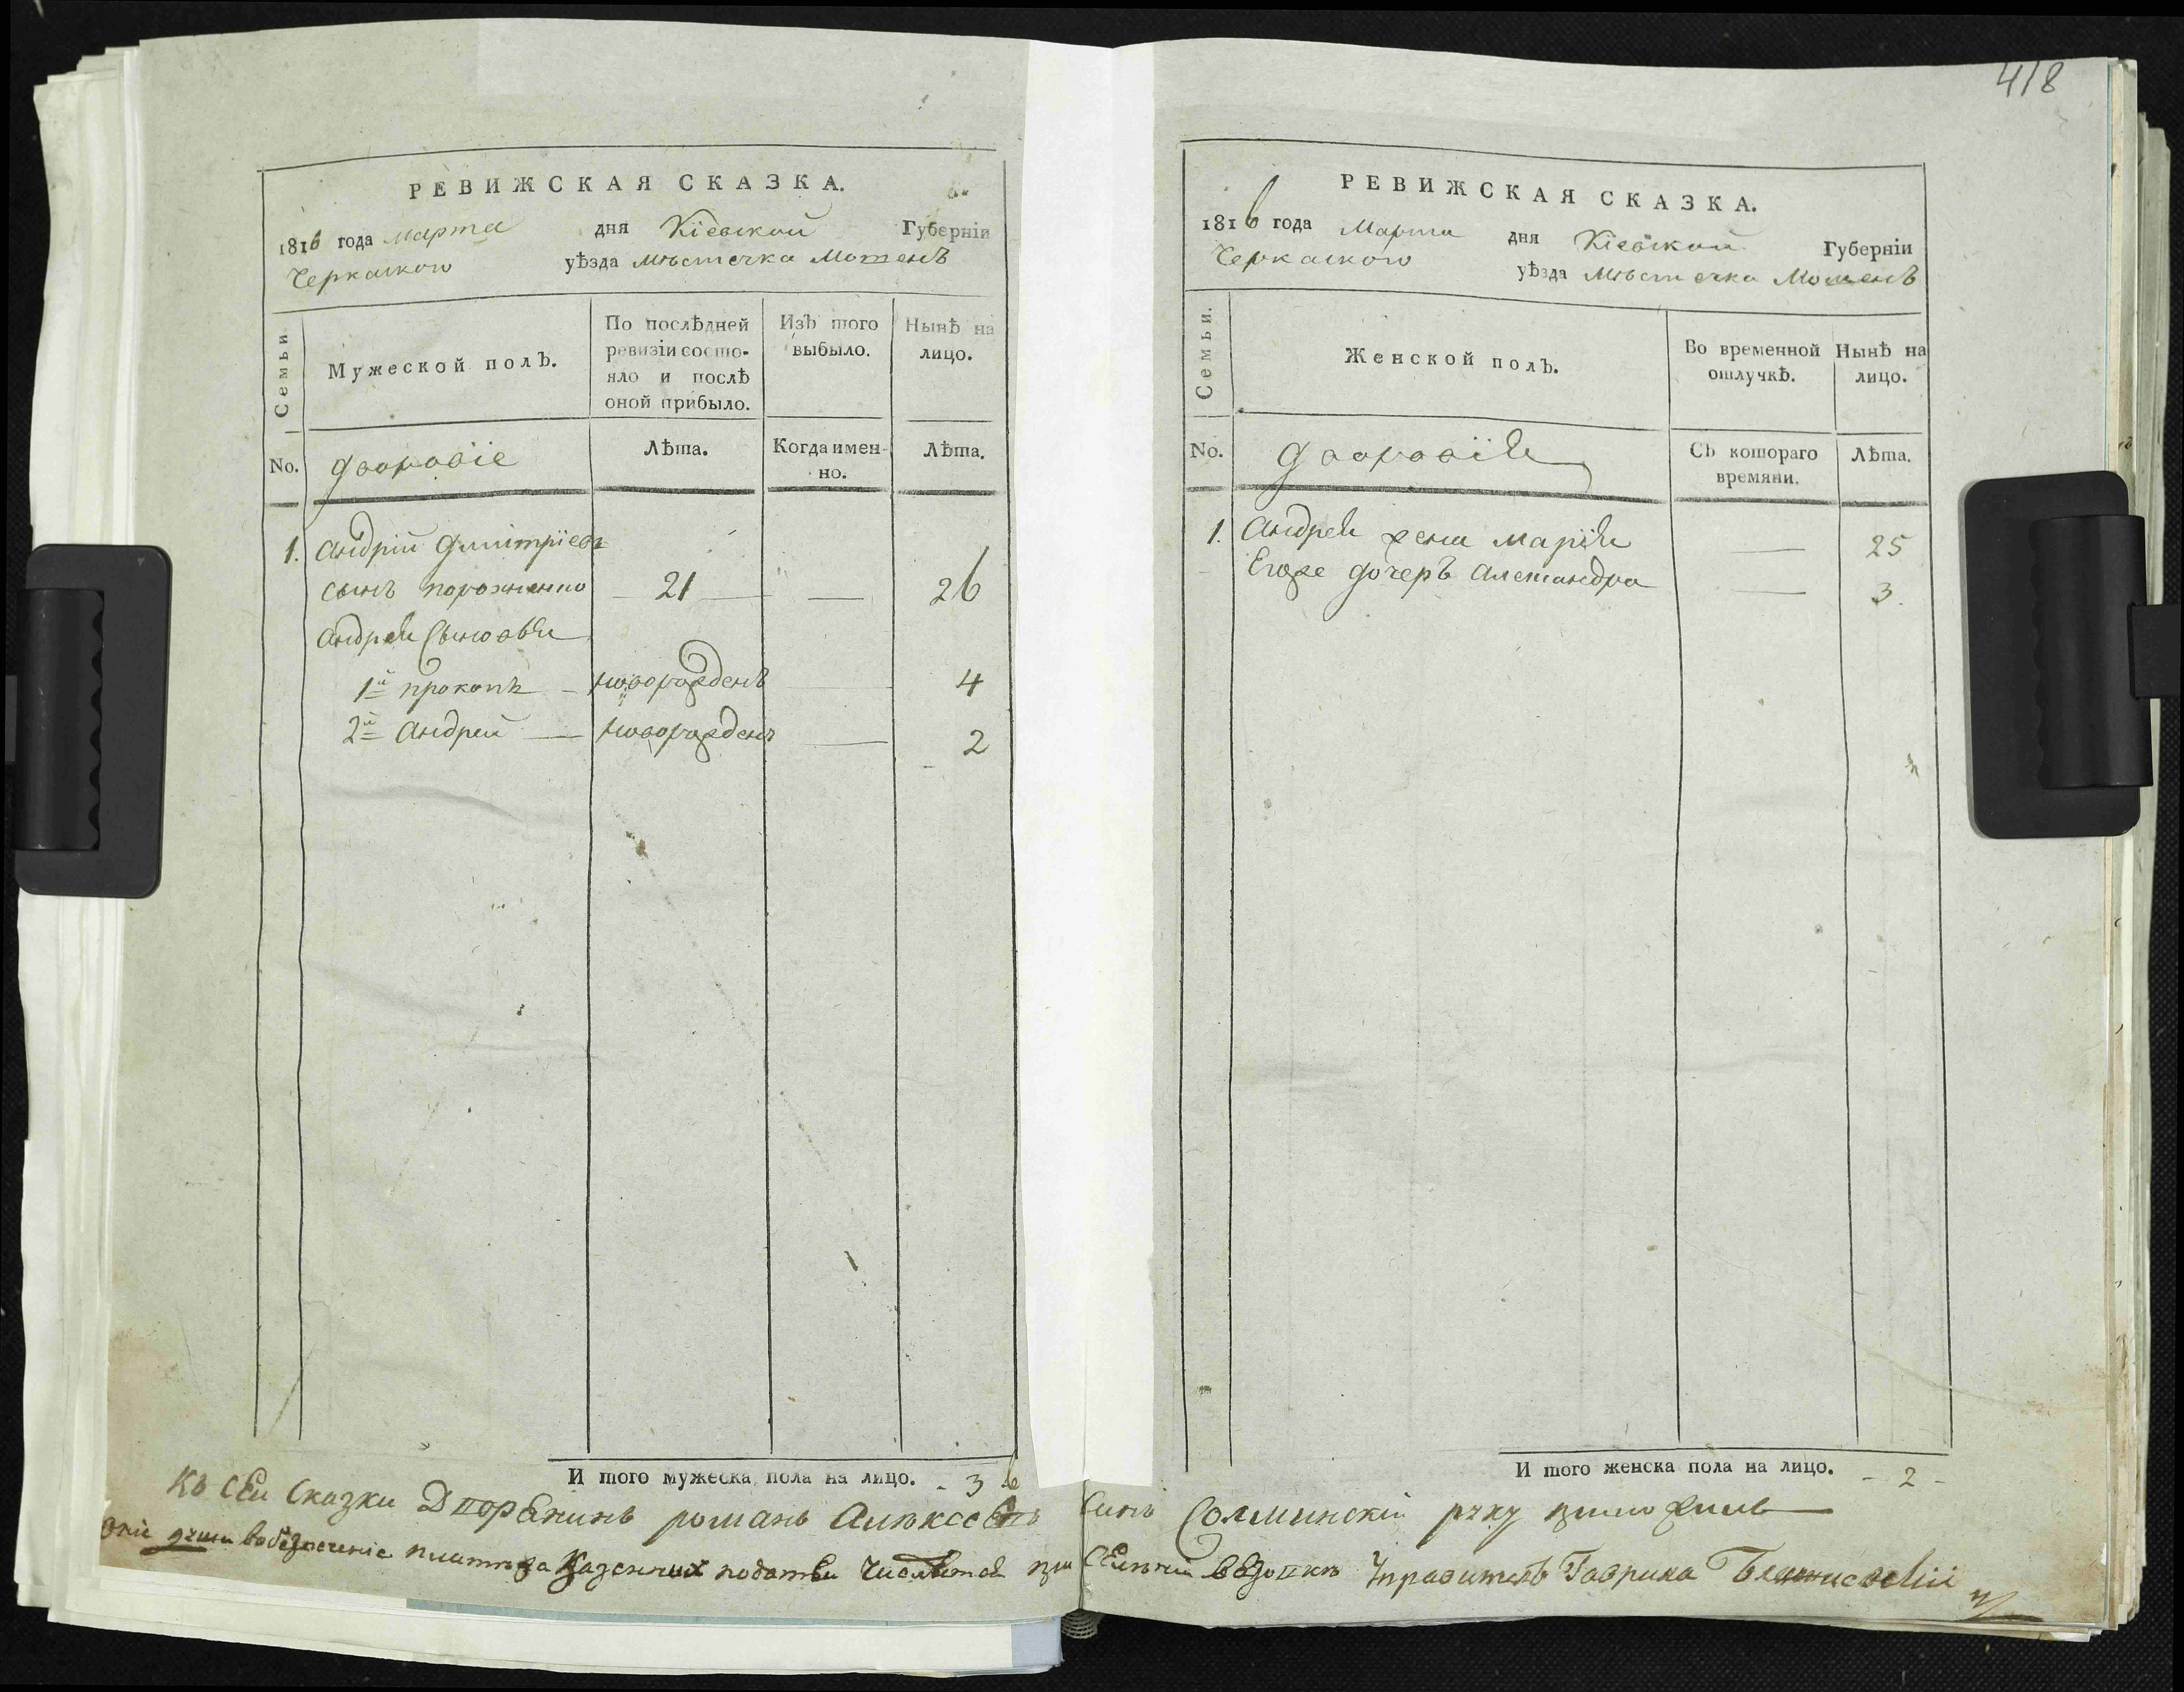 418
РЕВИЖСКАЯ СКАЗКА.
1816 года марта дня Кіевской Губерніи
Черкаского уѣзда мѣстечка Мошенъ
Семьи
Мужеской полъ.
По послѣдней
ревизіи состо-
яло и послѣ
оной прибыло.
Изъ того
выбыло.
Нынѣ на
лицо.
No.
дворовіе
Лѣта.
Когда имен-
но.
Лѣта.
1. андрій Дмитріевъ
сынъ порохненко 21 26
андрея Сыновья
1й прокопъ новорожденъ 4
2й андрей новорожденъ 2
И того мужеска пола на лицо. - 3
РЕВИЖСКАЯ СКАЗКА.
1816 года Марта дня Кіевской Губерніи
Черкаского уѣзда Мѣстечка Мошенъ
Семьи.
Женской полъ.
Во временной
отлучкѣ.
Нынѣ на
лицо.
No.
дворовія
Съ котораго
времяни.
Лѣта.
1. Андрея жена марія 25
Егоже дочеръ александра 3.
И того женска пола на лицо. - 2 -
Къ сеи Сказки Дворенинъ романъ Синъ руку
Казенних податеи Управитель Гаврила